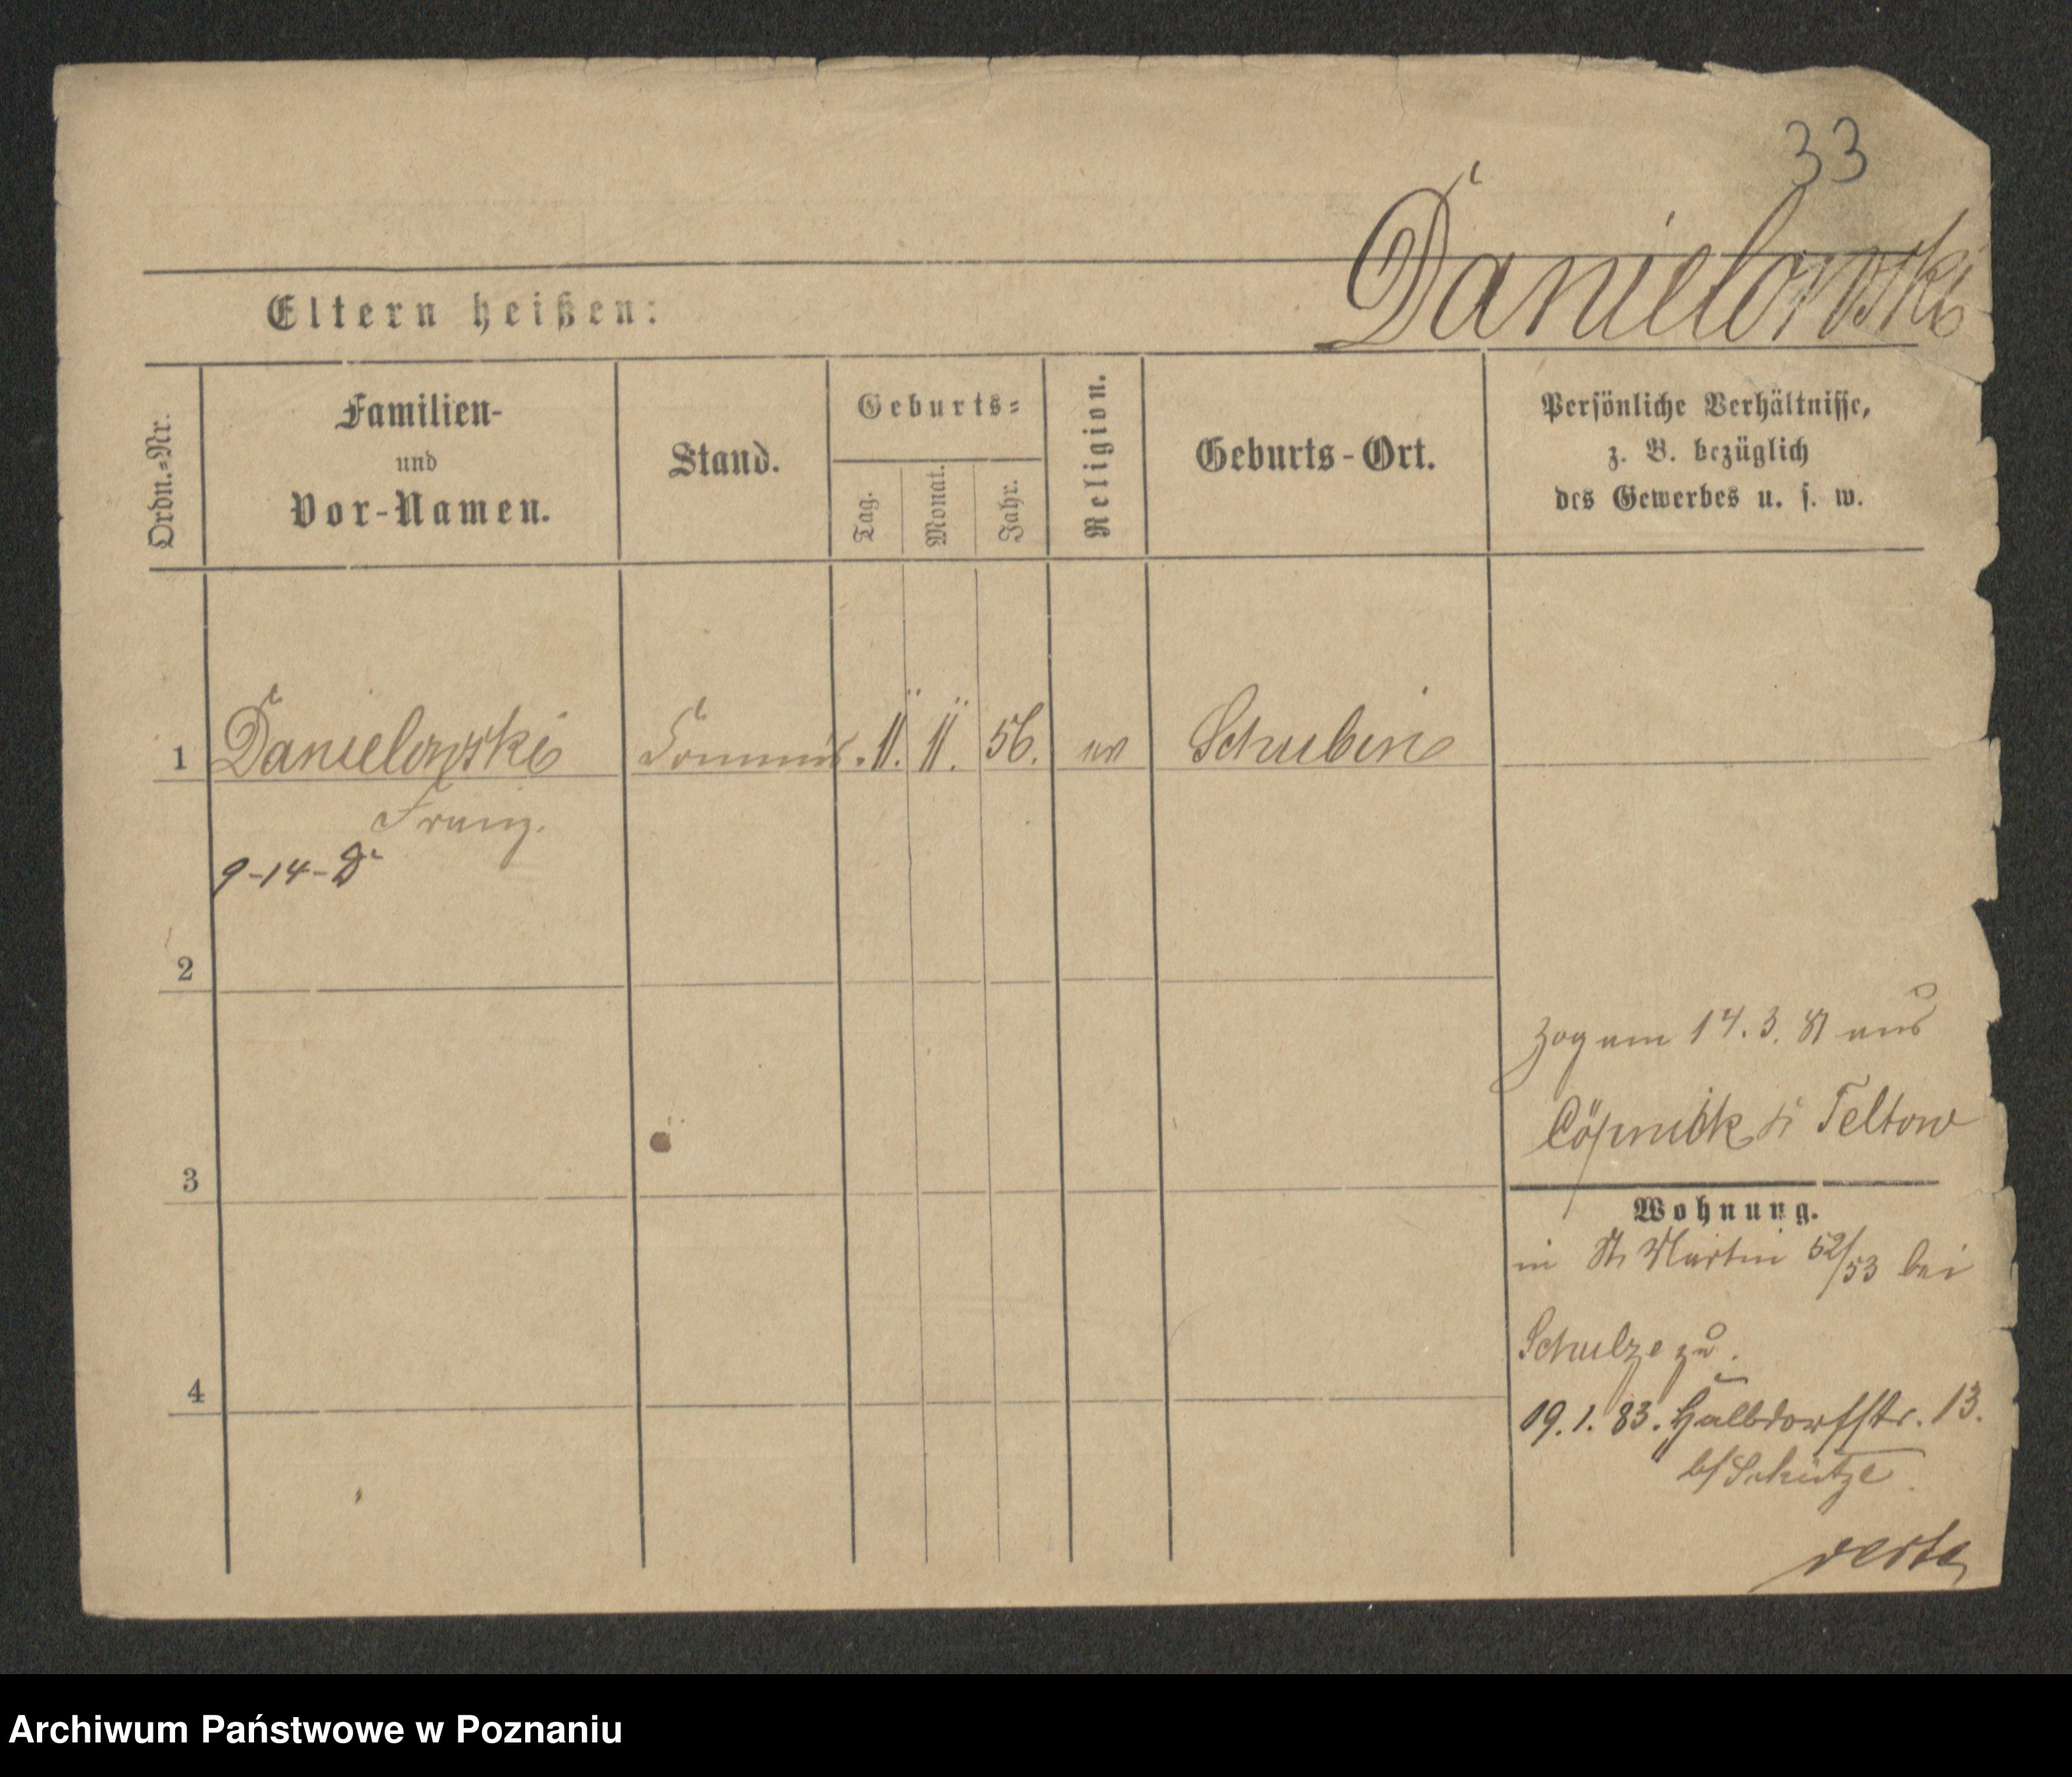 33
Danielowski
Eltern heißen:
Ordn.=Nr.
Familien-
und
Vor-Namen.
Stand.
Geburts=
Tag.
Monat.
Jahr.
Religion.
Geburts-Ort.
Persönliche Verhältnisse,
z. B. bezüglich
des Gewerbes u. s. w.
1 Danielowski Commis. 11. 11. 56. ev Schubin
Franz.
9-14-D
2
zog am 14. 3. 81 aus
Cöpenick Teltow
3
Wohnung.
in St. Martin 52/53 bei
Schulze zu.
4
19. 1. 83. Halbdorfstr. 13.
b/ Schütze
verte
Archiwum Państwowe w Poznaniu